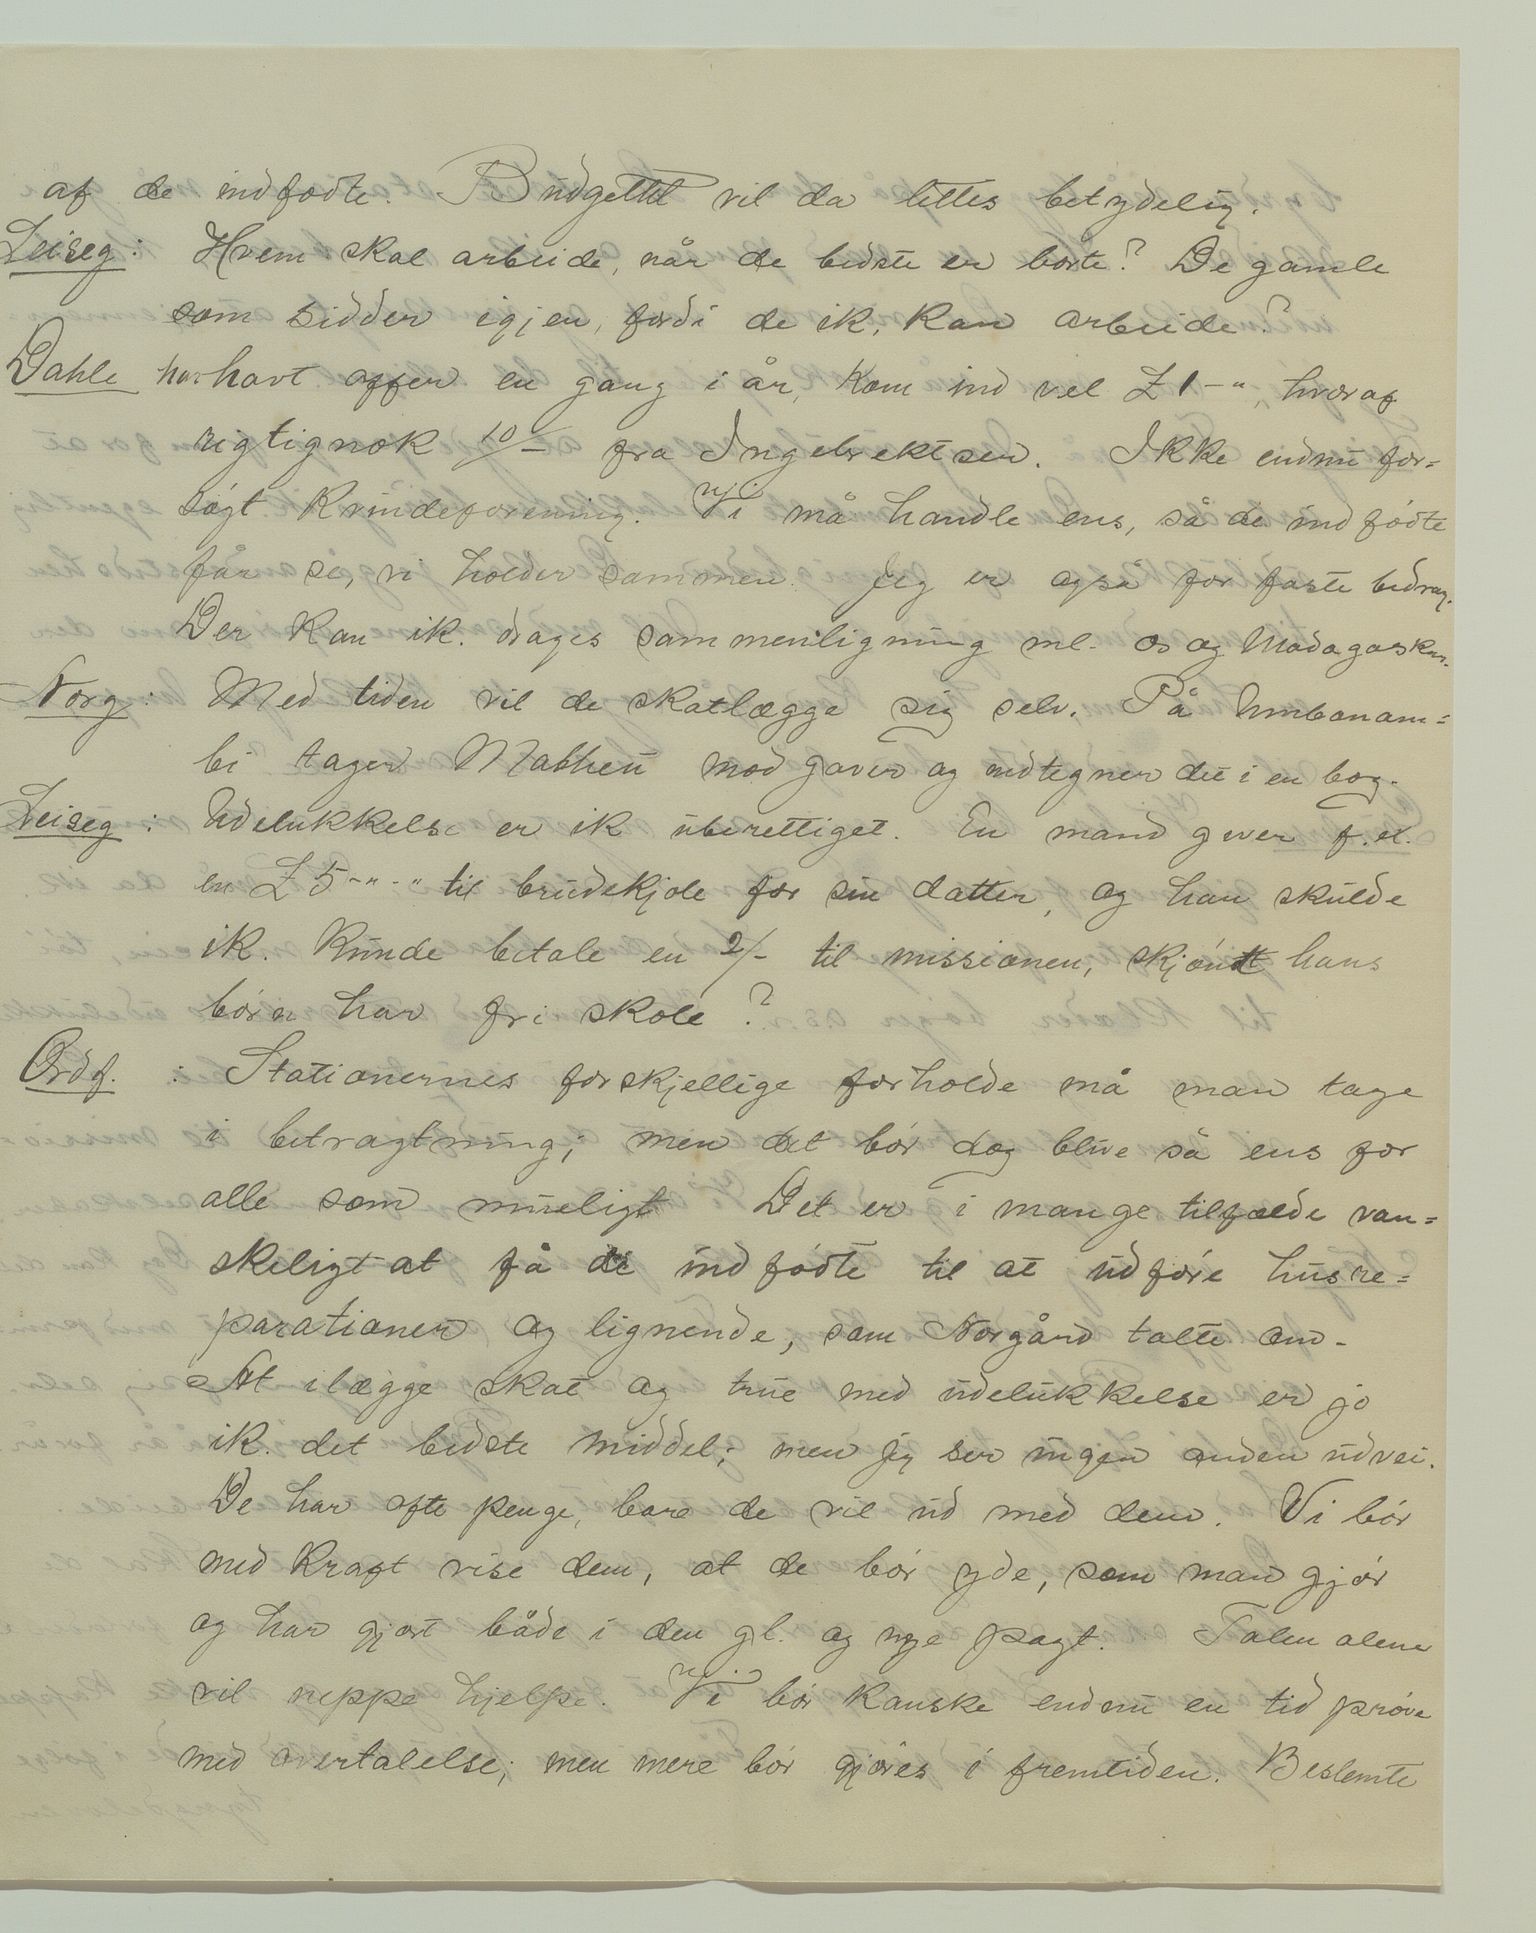 af de indfødte. Budgettet vil da lettes betydelig.
Leiseg: Hvem skal arbeide, når de bedste er borte? De gamle
som sidder igjen, fordi de ik. kan arbeide?
Dahle har havt offer en gang i år, kom ind vel £ 1-", hvoraf
rigtignok 10/- fra Ingebrektsen. Ikke endnu for=
søgt kvindeforening. Vi må handle ens, så de indfødte
får se, vi holder sammen. Jeg er også for faste bidrag.
Der kan ik. drages sammenligning ml. os og Madagaskar.
Norg: Med tiden vil de skatlægge sig selv. På Umbonam=
bi tager Matheu mod gaver og indtegner det i en bog.
Leiseg: Udelukkelse er ik uberettiget. En mand giver f. ex.
en £ 5-"-" til brudekjole for sin datter, og han skulde
ik. kunde betale en 2/- til missionen, skjøndt hans
børn har fri skole?
Ordf. : Stationernes forskjellige forholde må man tage
i betragtning; men det bør dog blive så ens for
alle som mueligt Det er i mange tilfælde van=
skeligt at få de indfødte til at udføre husre=
parationer og lignende, som Norgård talte om.
At ilægge skat og true med udelukkelse er jo
ik. det bedste middel; men jeg ser ingen anden udvei.
De har ofte penge, bare de vil ud med dem. Vi bør
med kraft vise dem, at de bør yde, som man gjør
og har gjort både i den gl. og nye pagt. Talen alene
vil neppe hjelpe. Vi bør kanske endnu en tid prøve
med overtalelse; men mere bør gjøres i fremtiden. Bestemte